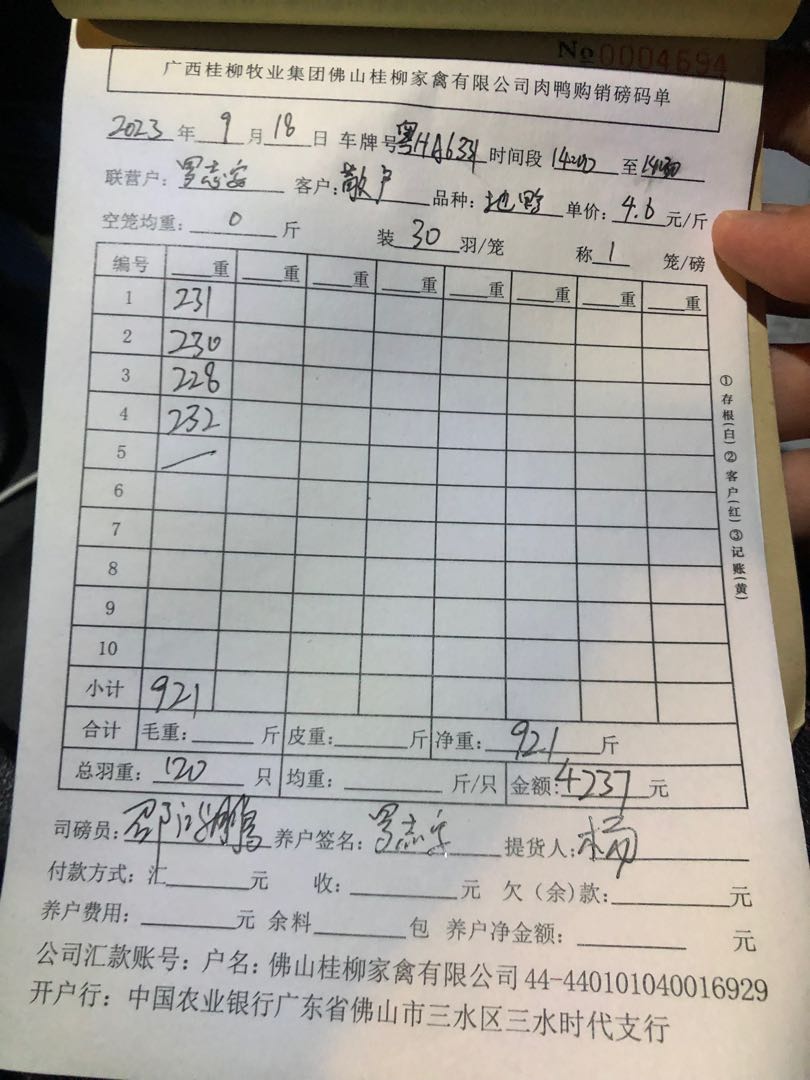 No 0004694
广西桂柳牧业集团佛山桂柳家禽有限公司肉鸭购销磅码单
2023 年 9 月 18 日 车牌号 粤HA634 时间段 14:00 至 14:30
联营户：罗志安 客户：散户 品种：土鸭 单价：4.6 元/斤
空笼均重：0 斤 装 30 羽/笼 称 1 笼/磅
编号 重 重 重 重 重 重 重 重
1 231
2 230
3 228
4 232
5
6
7
8
9
10
小计 921
合计 毛重： 斤 皮重： 斤 净重：921 斤
总羽重：120 只 均重： 斤/只 金额：4237 元
司磅员： 养户签名：罗志安 提货人：杨
付款方式：汇 元 收： 元 欠（余）款： 元
养户费用： 元 余料 包 养户净金额： 元
公司汇款账号：户名：佛山桂柳家禽有限公司 44-440101040016929
开户行：中国农业银行广东省佛山市三水区三水时代支行
①存根(白)②客户(红)③记账(黄)